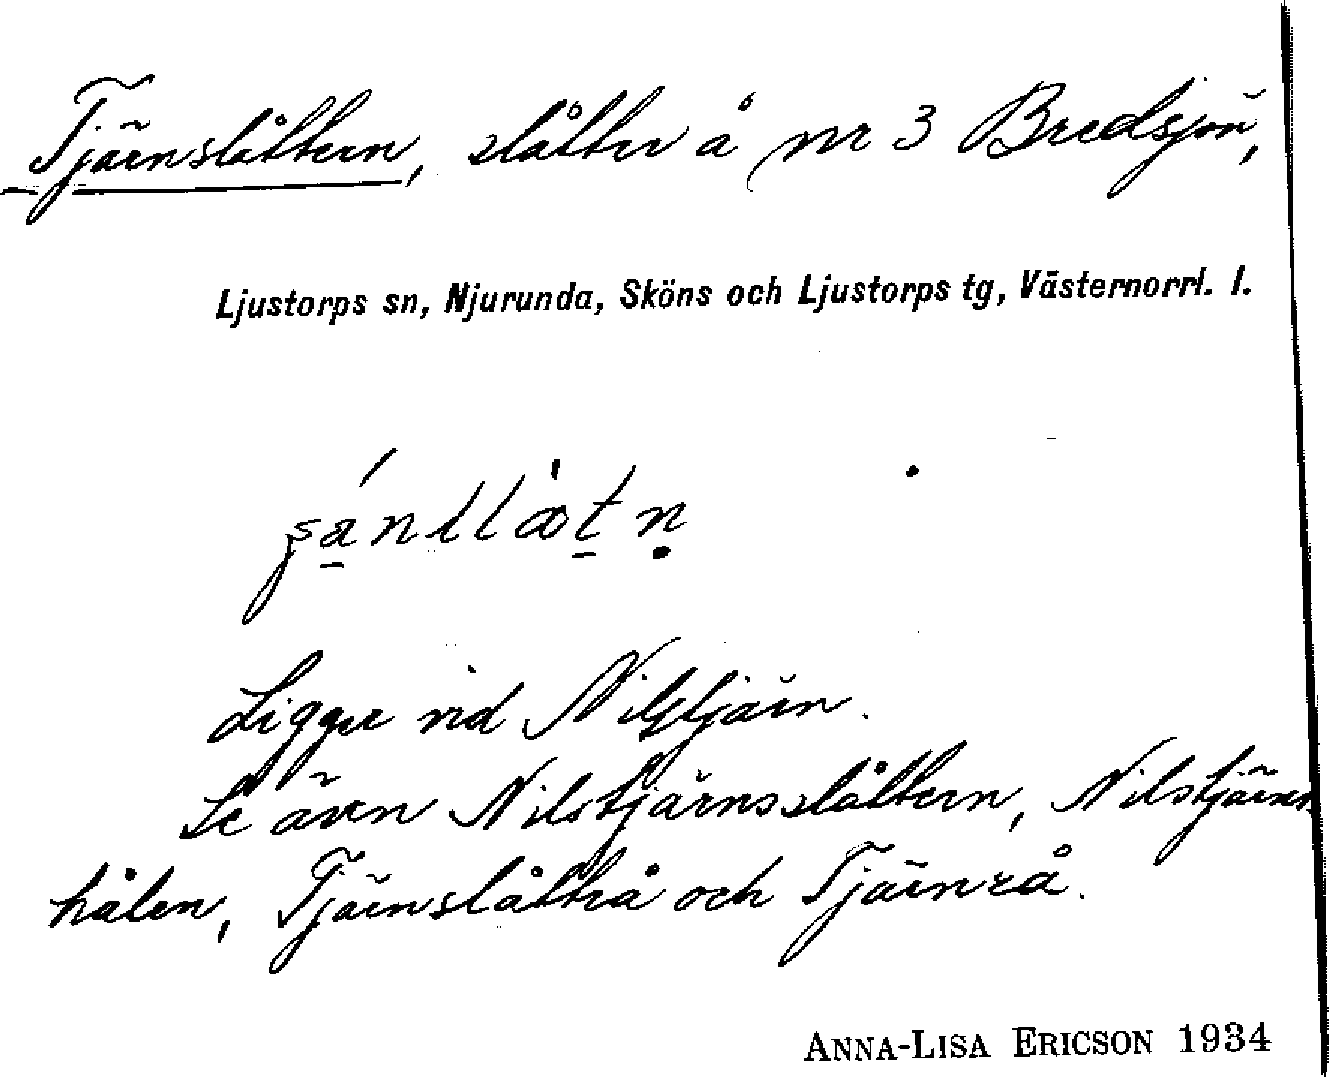 Tjärnslåttern, slåtter å nr 3 Bredsjön,
Ljustorps sn, Njurunda, Sköns och Ljustorps tg, Västernorrl. l.
Ligger vid Nilstjärn.
Se även Nilstjärnsslåttern, Nilstjärns
hålen, Tjärnslåttrå och Tjärnrå.
ANNA-LISA ERICSON 1934